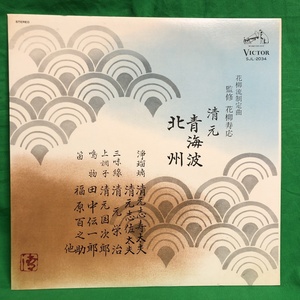 STEREO
VICTOR
SJL-2034
花柳流制定曲
監修 花柳寿応
清元
青海波
北州
浄瑠璃 清元志寿太夫
清元志佐太夫
三味線 清元栄治
上調子 清元国次郎
鳴物 田中伝一郎
笛 福原百之助
他